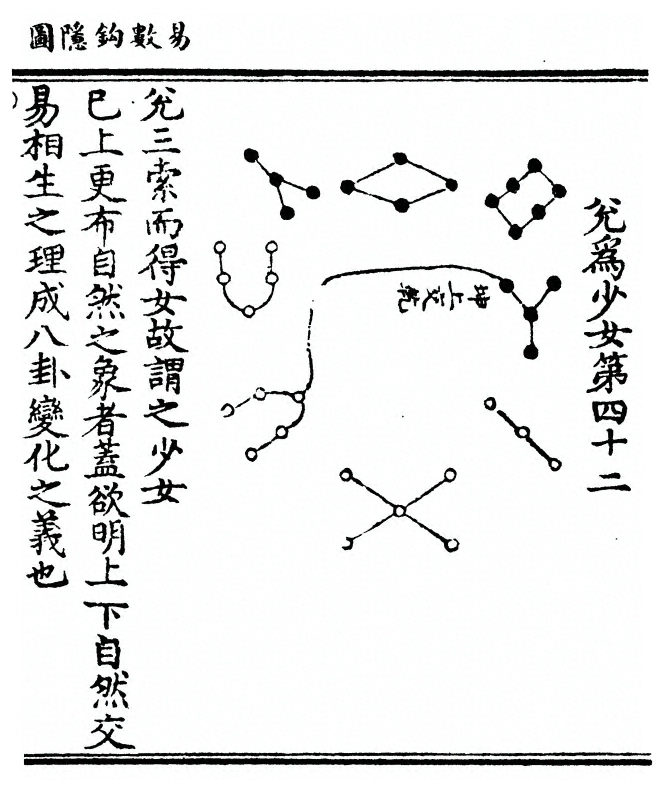 易數鈎隱圖
兊爲少女第四十二
坤上交乾
兊三索而得女故謂之少女
巳上更布自然之象者蓋欲明上下自然交
易相生之理成八卦變化之義也